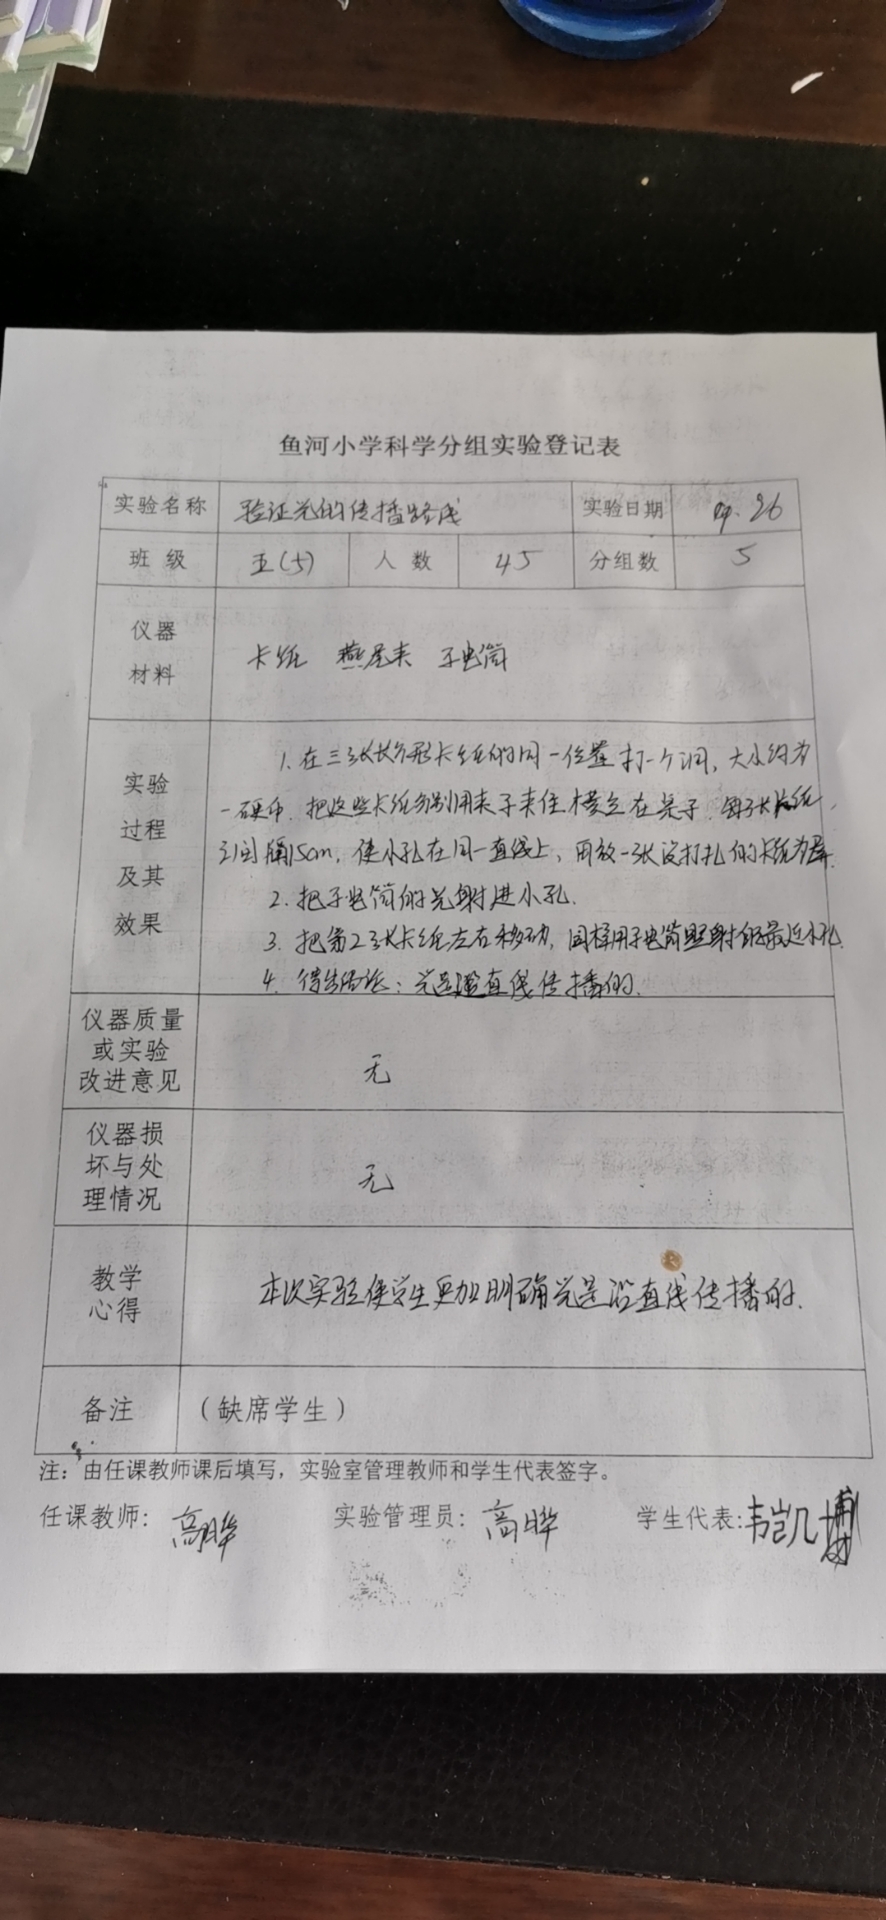 鱼河小学科学分组实验登记表
实验名称 验证光的传播路线 实验日期 09.26
班 级 五(5) 人 数 45 分组数 5
仪器
材料
卡纸 燕尾夹 手电筒
实验
过程
及其
效果
1. 在三张长方形卡纸的同一位置打一个洞,大小约为
一硬币.把这些卡纸分别用夹子夹住横立在桌子.每张卡纸
之间隔15cm,使小孔在同一直线上,再放一张没打孔的卡纸为屏.
2. 把手电筒的光射进小孔.
3. 把第2张卡纸左右移动,同样用手电筒照射最近小孔.
4. 得出结论:光是沿直线传播的.
仪器质量
或实验
改进意见
无
仪器损
坏与处
理情况
无
教学
心得
本次实验使学生更加明确光是沿直线传播的.
备注 (缺席学生)
注:由任课教师课后填写,实验室管理教师和学生代表签字。
任课教师: 高晔 实验管理员: 高晔 学生代表:韦凯博